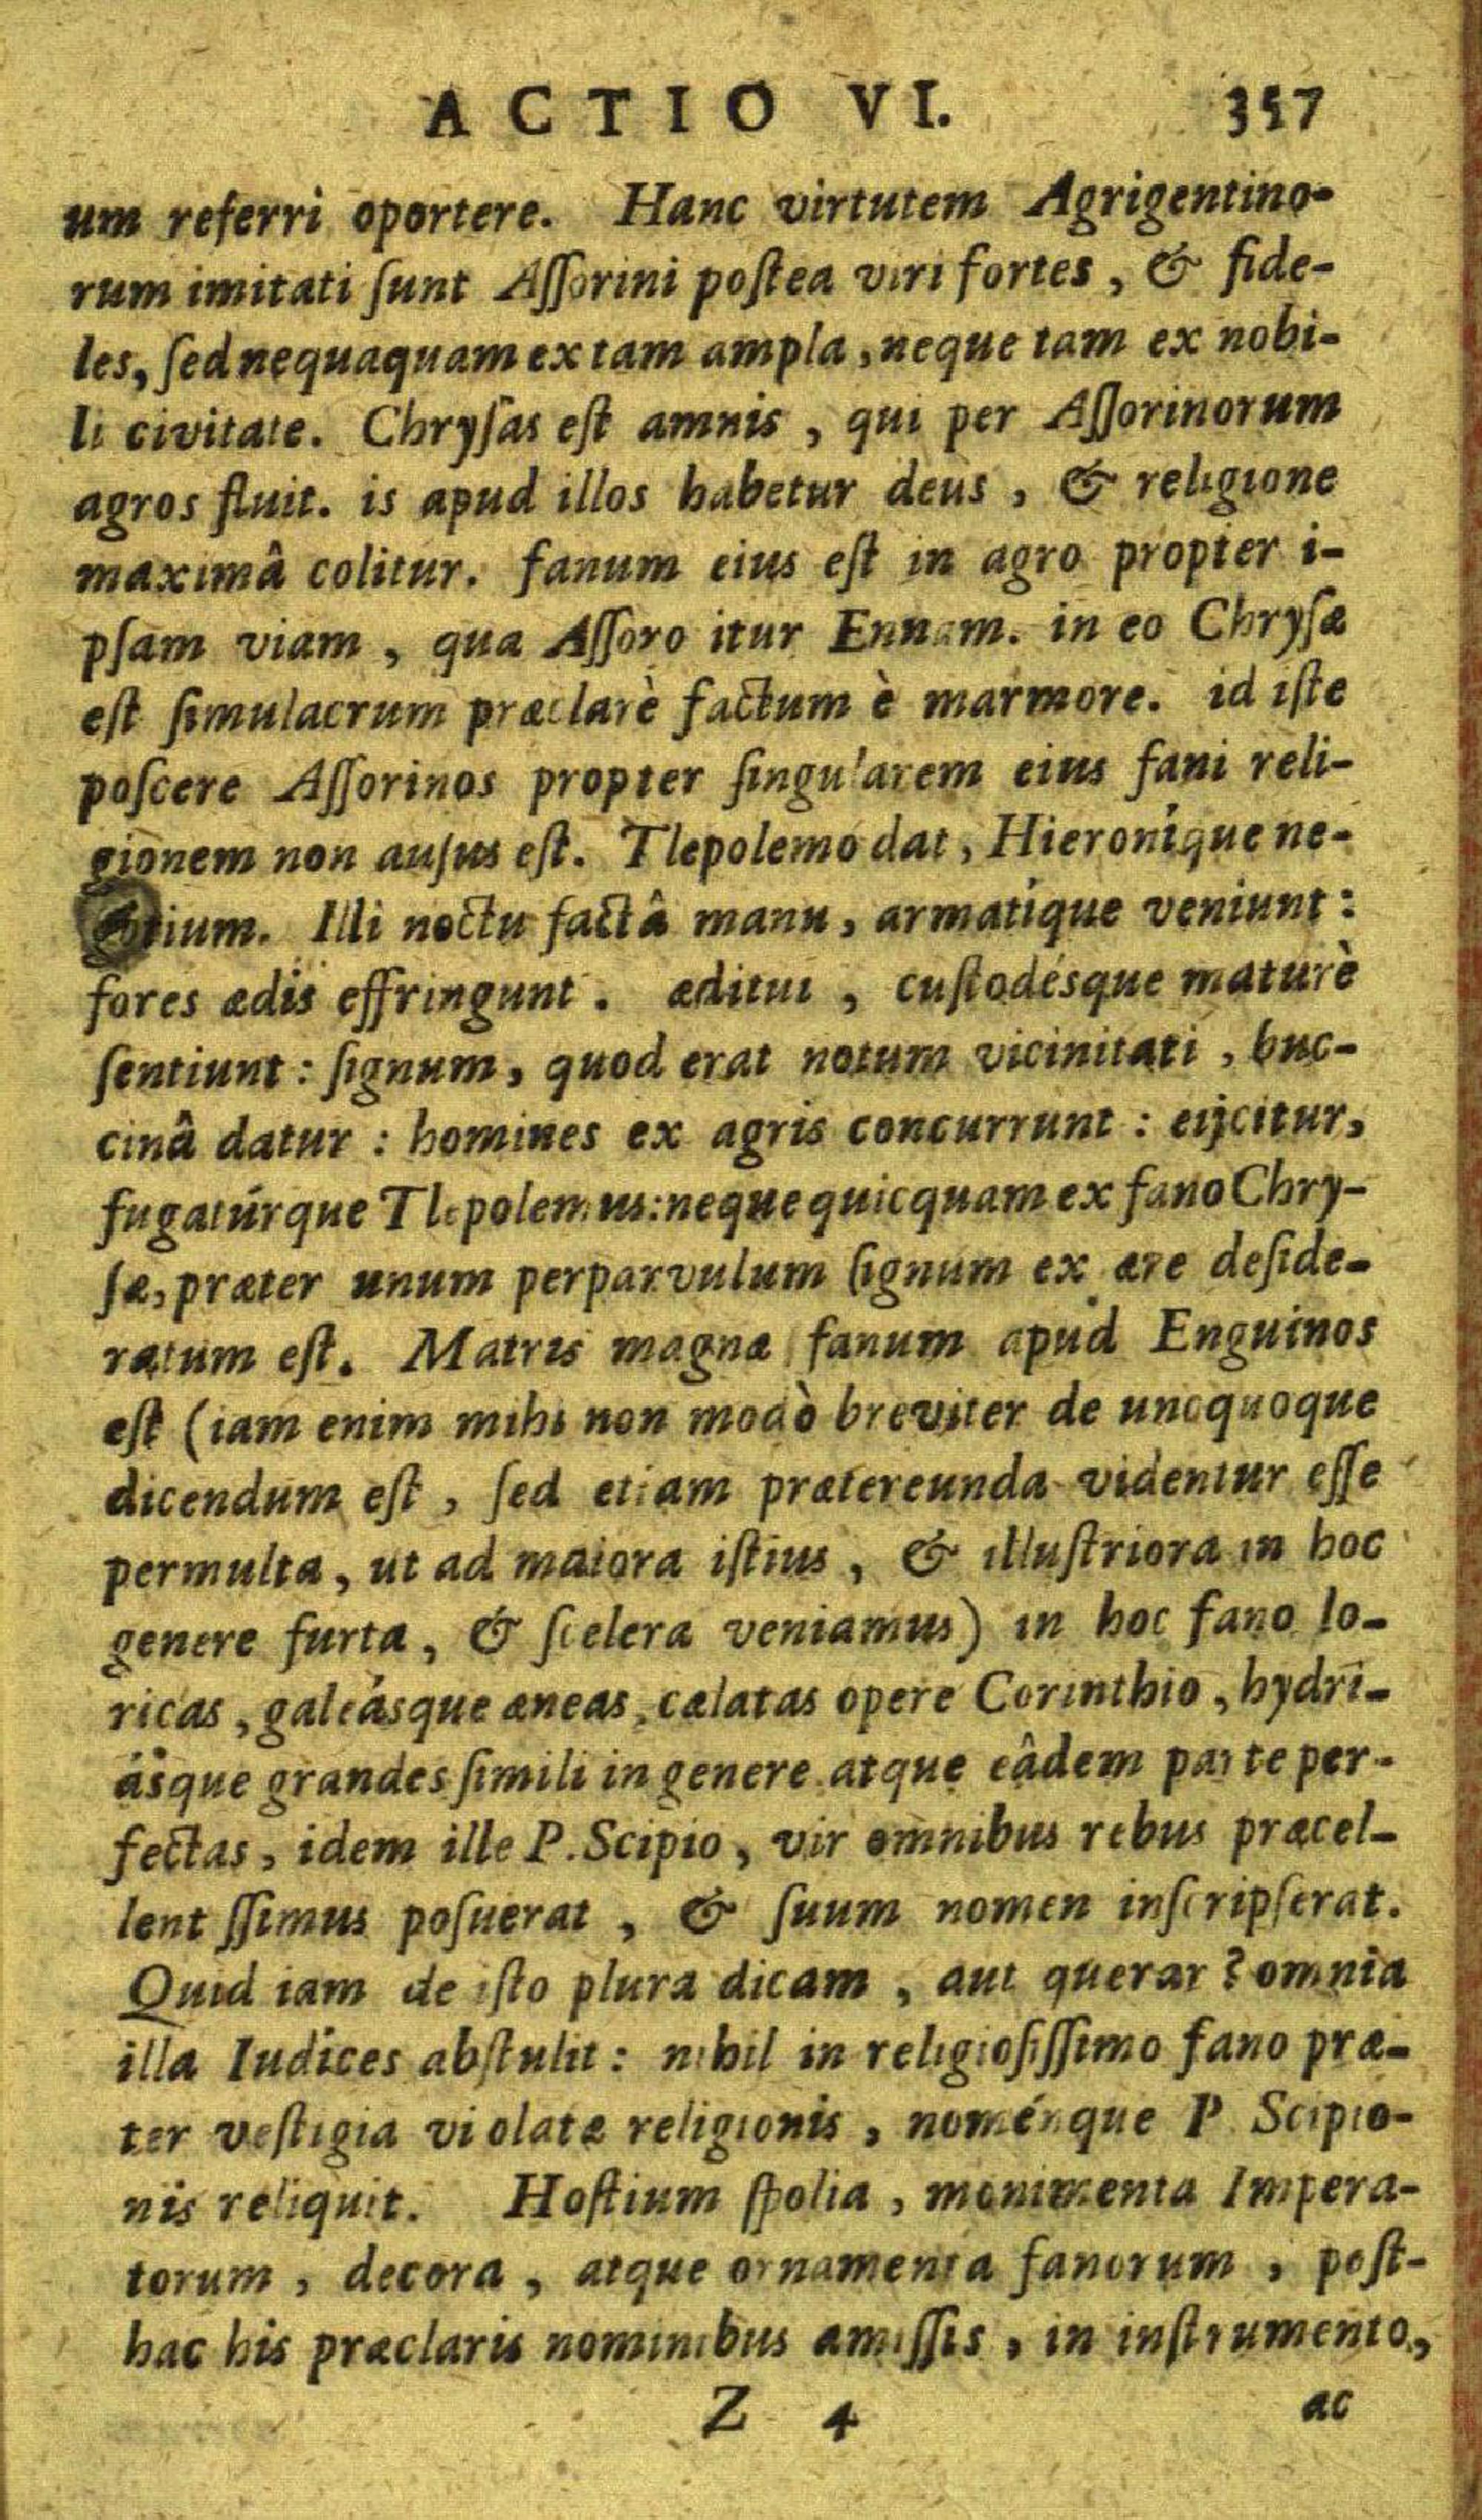 ACTIO VI. 357
um referri oportere. Hanc virtutem Agrigentino-
rum imitati ſunt Aſſorini poſtea viri fortes, & fide-
les, ſed nequaquam ex tam ampla, neque tam ex nobi-
li civitate. Chryſas eſt amnis, qui per Aſſorinorum
agros fluit. is apud illos habetur deus, & religione
maximâ colitur. fanum eius eſt in agro propter i-
pſam viam, qua Aſſoro itur Ennam. in eo Chryſæ
eſt ſimulacrum præclarè factum è marmore. id iſte
poſcere Aſſorinos propter ſingularem eius fani reli-
gionem non auſus eſt. Tlepolemo dat, Hieroníque ne-
gotium. Illi noctu factâ manu, armatíque veniunt:
fores ædis effringunt. æditui, cuſtodésque maturè
ſentiunt: ſignum, quod erat notum vicinitati, buc-
cinâ datur: homines ex agris concurrunt: eijcitur,
fugatúrque Tlepolemus: neque quicquam ex fano Chry-
ſæ, præter unum perparvulum ſignum ex ære deſide-
ratum eſt. Matris magnæ fanum apud Enguinos
eſt (iam enim mihi non modò breviter de unoquoque
dicendum eſt, ſed etiam prætereunda videntur eſſe
permulta, ut ad maiora iſtius, & illuſtriora in hoc
genere furta, & ſcelera veniamus) in hoc fano lo-
ricas, galeásque æneas, cælatas opere Corinthio, hydri-
ásque grandes ſimili in genere atque eâdem parte per-
fectas, idem ille P. Scipio, vir omnibus rebus præcel-
lent ſſimus poſuerat, & ſuum nomen inſcripſerat.
Quid iam de iſto plura dicam, aut querar? omnia
illa Iudices abſtulit: nihil in religioſiſſimo fano præ-
ter veſtigia violatæ religionis, noménque P Scipio-
nis reliquit. Hoſtium ſpolia, monimenta Impera-
torum, decora, atque ornamenta fanorum, poſt-
hac his præclaris nominibus amiſſis, in inſtrumento,
Z 4 ac